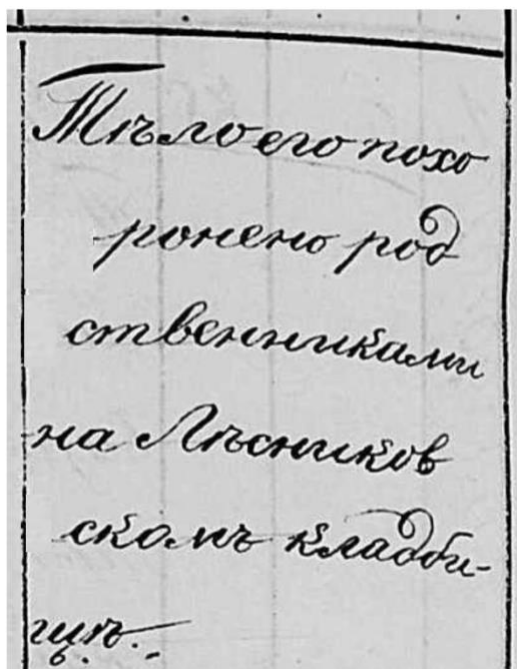 Тѣло его похо
ронено род
ственниками
на Лѣсников
скомъ кладби-
щѣ.